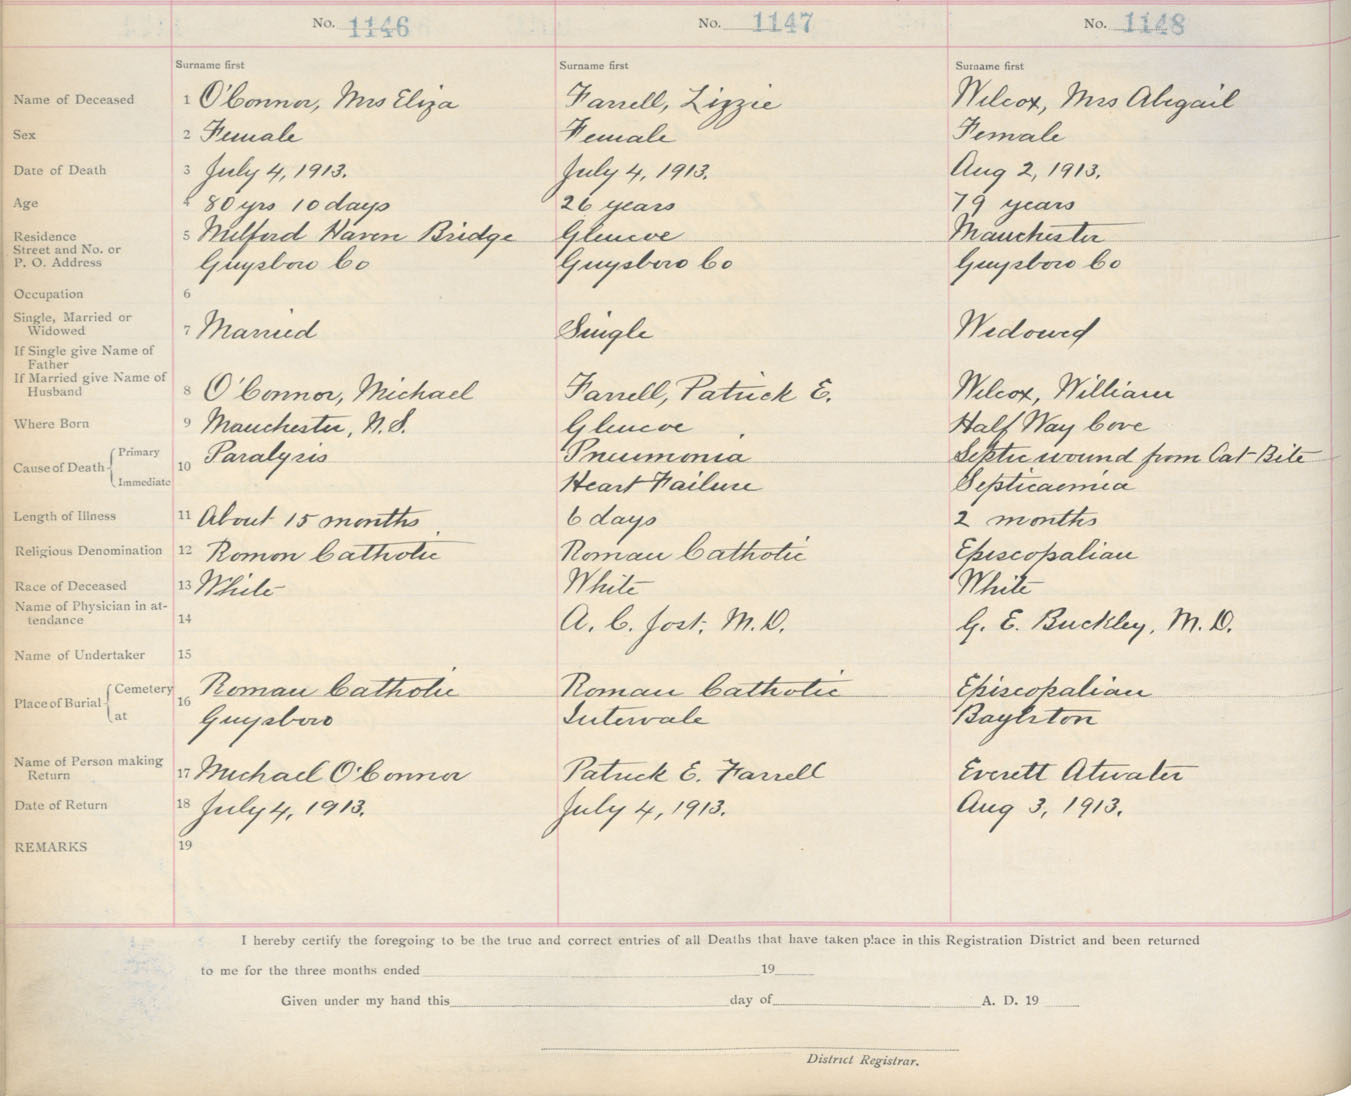 No. 1146 No. 1147 No. 1148
Surname first Surname first Surname first
Name of Deceased 1 O'Connor, Mrs Eliza Farrell, Lizzie Wilcox, Mrs Abigail
Sex 2 Female Female Female
Date of Death 3 July 4, 1913. July 4, 1913. Aug 2, 1913.
Age 4 80 yrs 10 days 26 years 79 years
Residence 5 Milford Haven Bridge Glencove Manchester
Street and No. or
P. O. Address Guysboro Co Guysboro Co Guysboro Co
Occupation 6
Single, Married or
Widowed 7 Married Single Widowed
If Single give Name of
Father
If Married give Name of
Husband 8 O'Connor, Michael Farrell, Patrick E. Wilcox, William
Where Born 9 Manchester, N.S. Glencove Half Way Cove
Cause of Death Primary 10 Paralysis Pneumonia Septic wound from Cat-Bite
Immediate Heart Failure Septicaemia
Length of Illness 11 About 15 months 6 days 2 months
Religious Denomination 12 Romon Catholic Roman Catholic Episcopalian
Race of Deceased 13 White White White
Name of Physician in at-
tendance 14 A. C. Jost, M.D. G. E. Buckley, M.D.
Name of Undertaker 15
Place of Burial Cemetery 16 Roman Catholic Roman Catholic Episcopalian
at Guysboro Intervale
Name of Person making
Return 17 Michael O'Connor Patrick E. Farrell Everett Atwater
Date of Return 18 July 4, 1913. July 4, 1913. Aug 3, 1913.
REMARKS 19
I hereby certify the foregoing to be the true and correct entries of all Deaths that have taken place in this Registration District and been returned
to me for the three months ended 19
Given under my hand this day of A. D. 19
District Registrar.